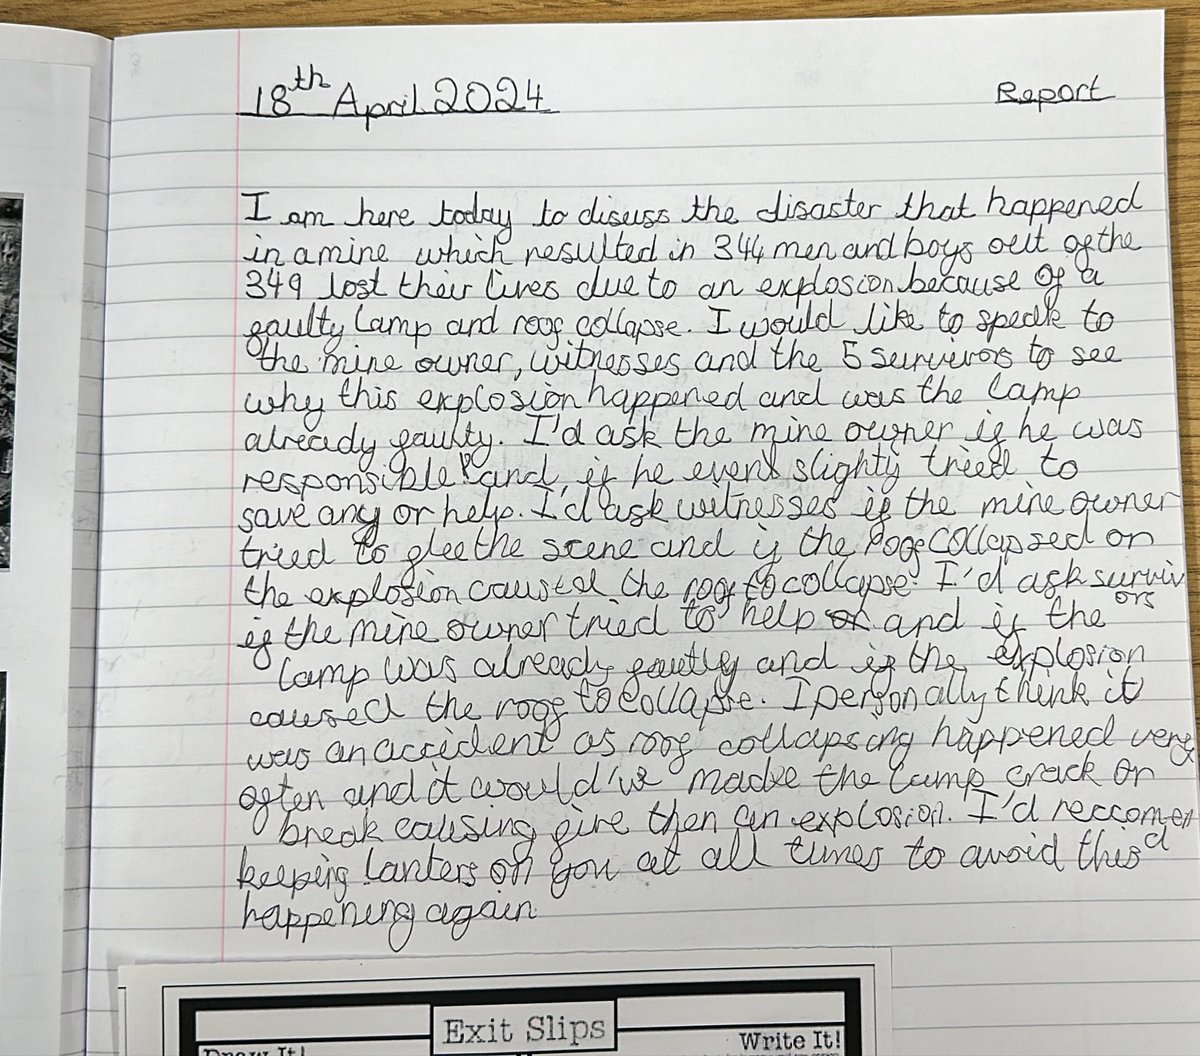 18th April 2024
Report
I am here today to disuss the disaster that happened
in a mine which resulted in 344 men and boys out of the
349 lost their lives due to an explosion because of a
faulty lamp and roof collapse. I would like to speak to
the mine owner, witnesses and the 5 survivors to see
why this explosion happened and was the lamp
already faulty. I'd ask the mine owner if he was
responsible and, if he even slighty tried to
save any or help. I'd ask witnesses if the mine owner
tried to flee the scene and if the roof collapsed or
the explosion caused the roof to collapse. I'd ask surviv
ors
if the mine owner tried to help or and if the
lamp was already faulty and if the explosion
caused the roof to collapse. I personally think it
was an accident as roof collapsing happened very
often and it would've made the lamp crack or
break causing fire then an explosion. I'd reccomen
d
keeping lanters on you at all times to avoid this
happening again
Exit Slips
Draw It!
Write It!